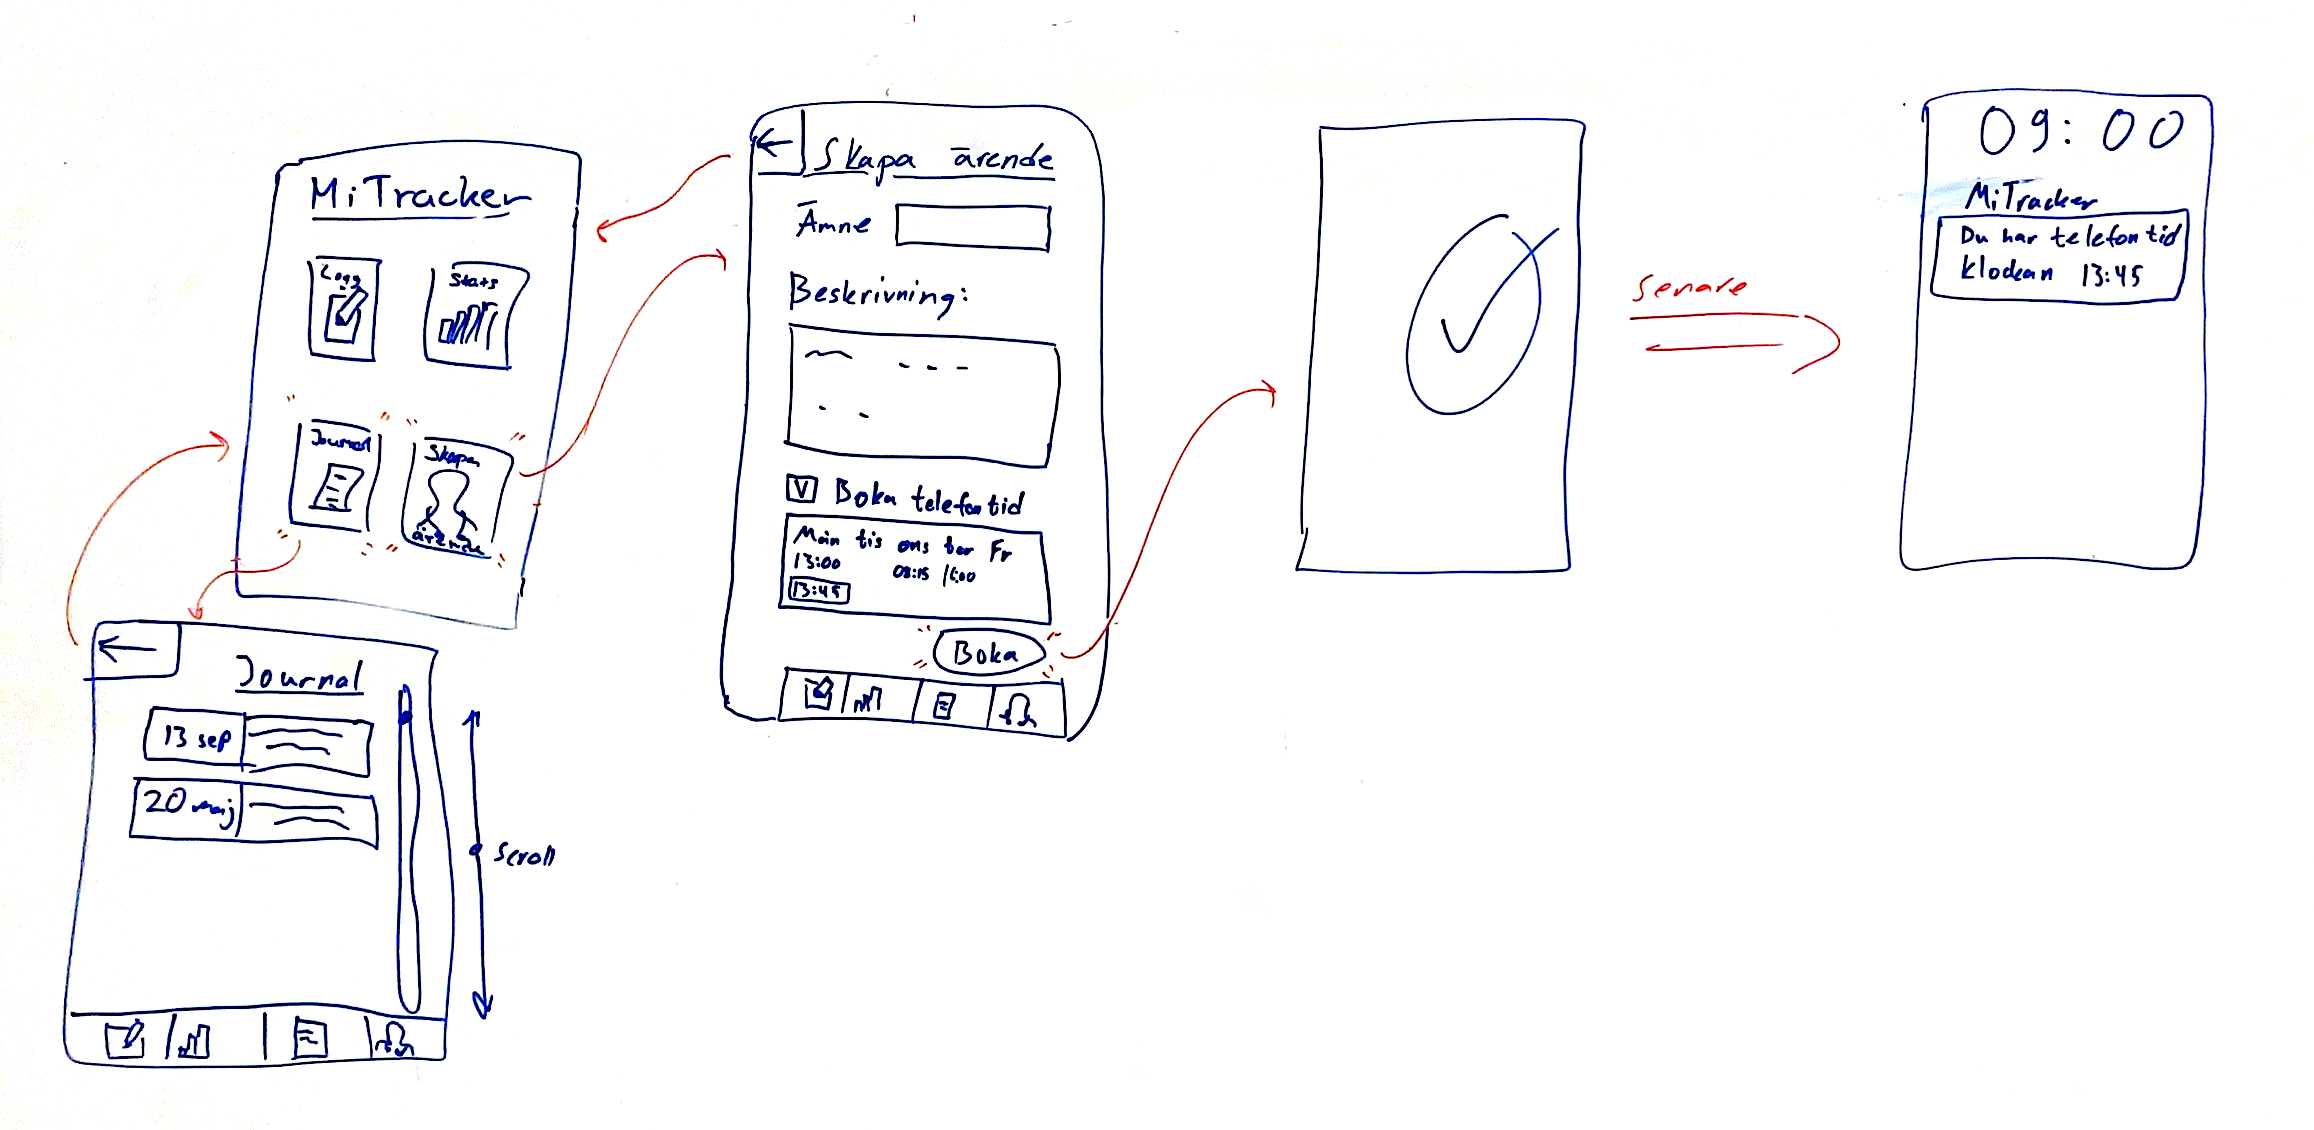 MiTracker
Logg
Stats
Journal
Skapa
ärende
Journal
13 sep
20 maj
Scroll
Skapa ärende
Ämne
Beskrivning:
V Boka telefontid
Mån tis ons tor Fr
13:00 08:15 16:00
13:45
Boka
senare
09:00
MiTracker
Du har telefontid
klockan 13:45